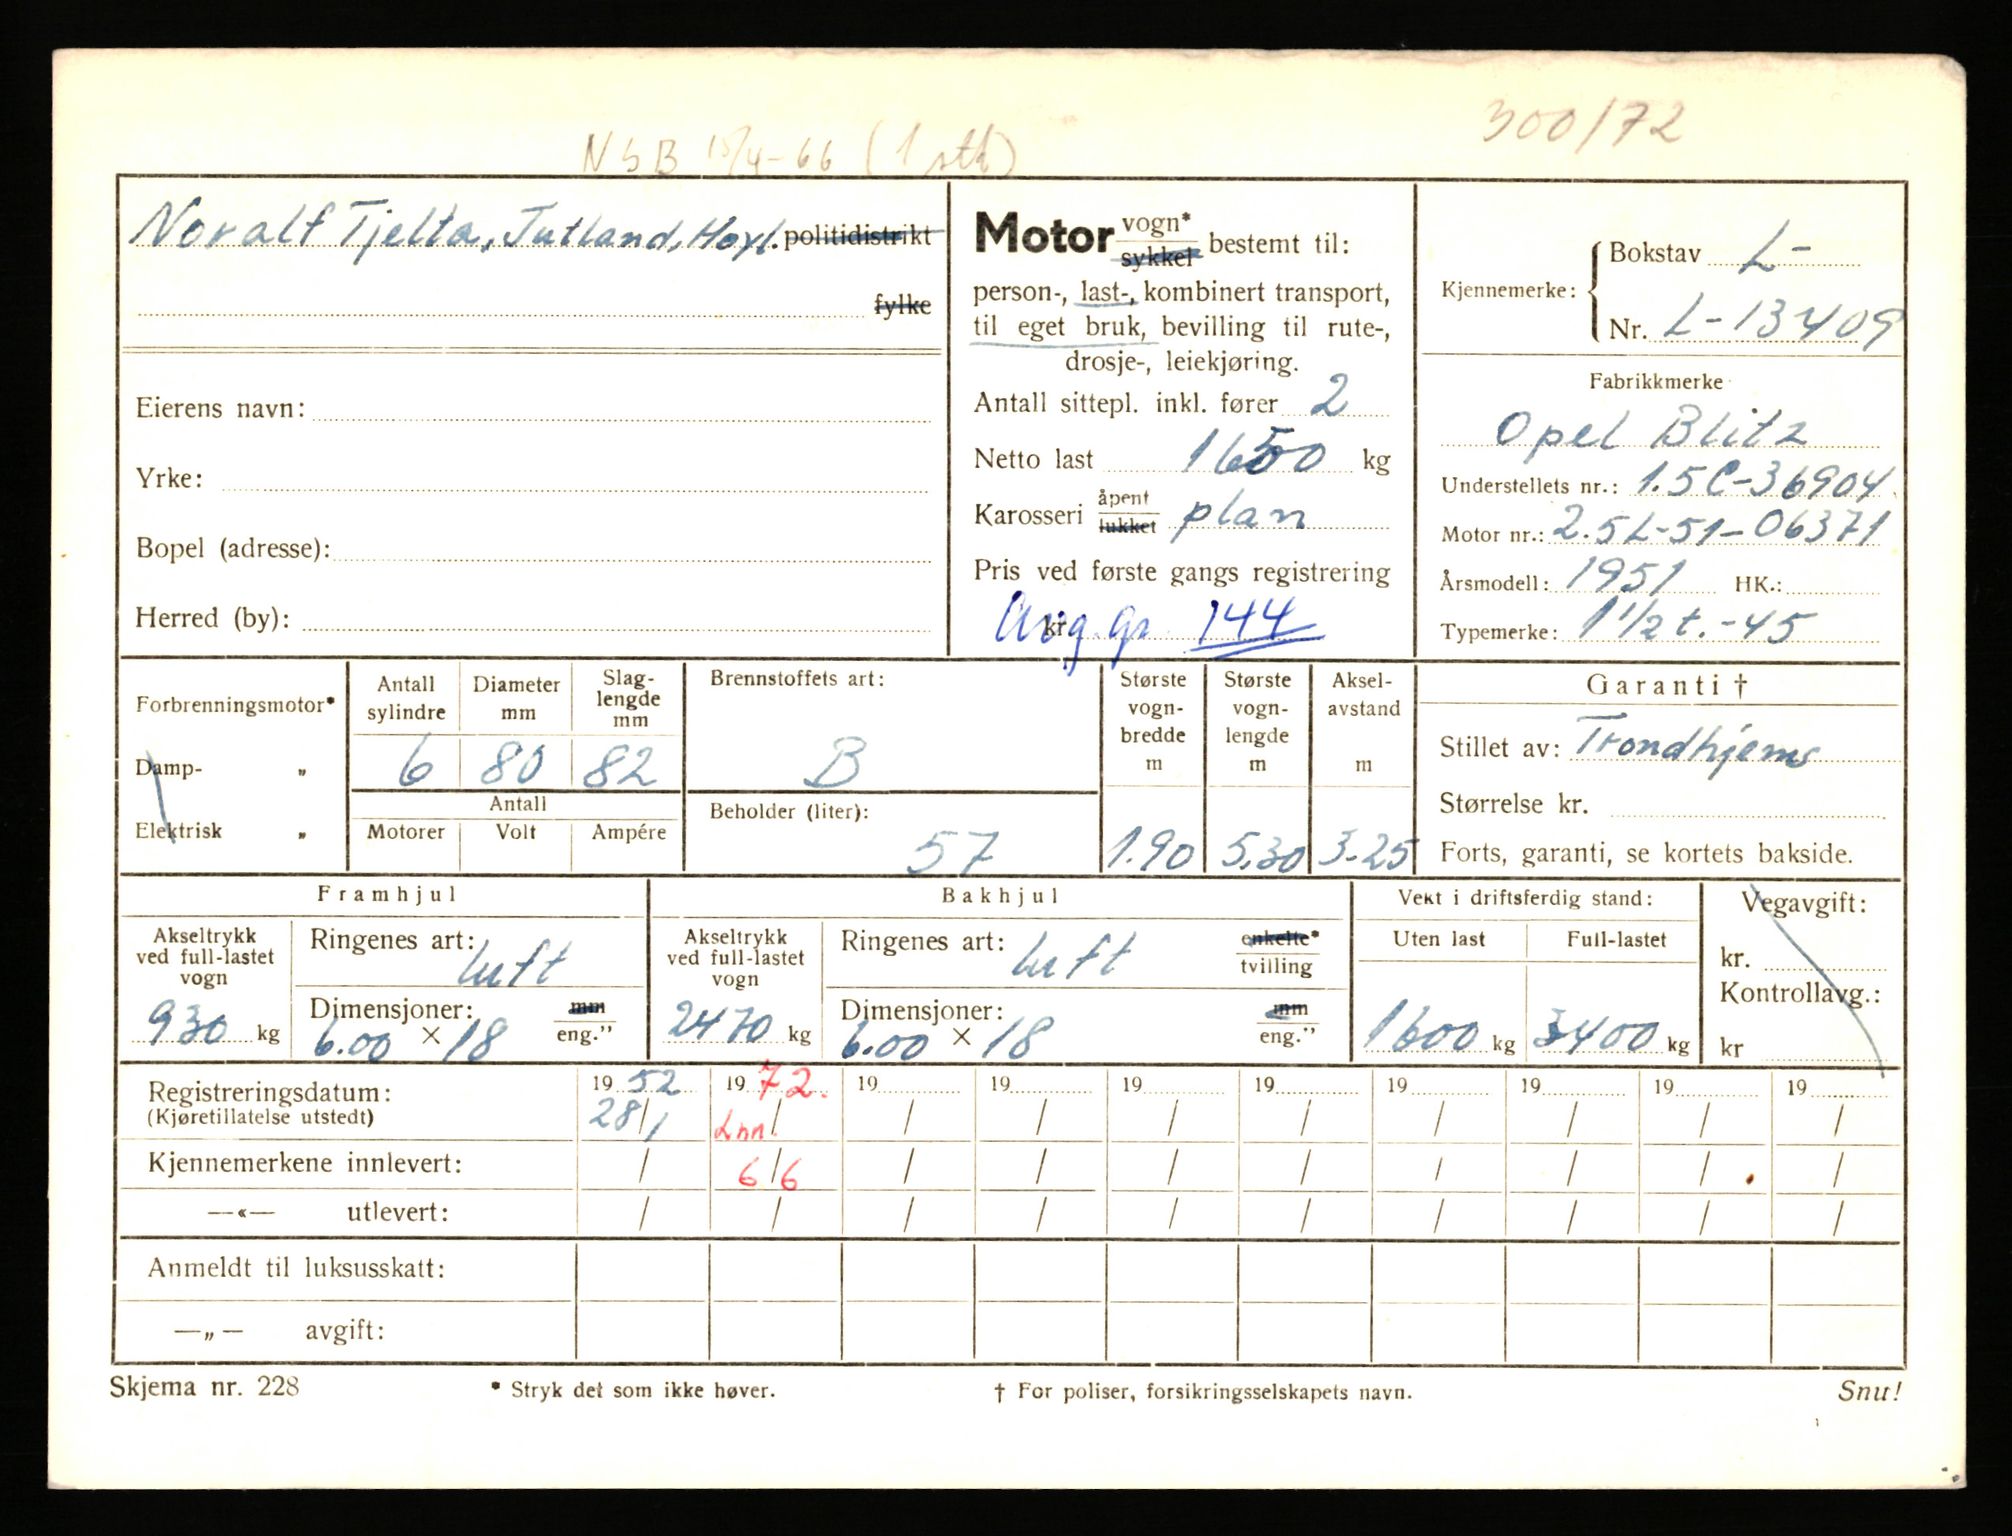 300/72
NSB 15/4-66 (1 stk)
Noralf Tjelta, Jutland, Høyl. politidistrikt
fylke
Eierens navn:
Yrke:
Bopel (adresse):
Herred (by):
Motor vogn* sykkel bestemt til:
person-, last-, kombinert transport,
til eget bruk, bevilling til rute-,
drosje-, leiekjøring.
Antall sittepl. inkl. fører 2
Netto last 1650 kg
Karosseri åpent lukket plan
Pris ved første gangs registrering
kr. Avg. gr. 144
Kjennemerke: Bokstav L-
Nr. L-13409
Fabrikkmerke
Opel Blitz
Understellets nr.: 1.5C-36904
Motor nr.: 2.5L-51-06371
Årsmodell: 1951 HK.:
Typemerke: 1 1/2 t.-45
Forbrenningsmotor*
Damp- „
Elektrisk „
Antall sylindre 6
Diameter mm 80
Slag-lengde mm 82
Antall
Motorer Volt Ampére
Brennstoffets art:
B
Beholder (liter):
57
Største vogn-bredde m 1.90
Største vogn-lengde m 5.30
Aksel-avstand m 3.25
Garanti †
Stillet av: Trondhjems
Størrelse kr.
Forts, garanti, se kortets bakside.
Framhjul
Akseltrykk ved full-lastet vogn
930 kg
Ringenes art: luft
Dimensjoner: mm eng.”
6.00 × 18
Bakhjul
Akseltrykk ved full-lastet vogn
2470 kg
Ringenes art: luft enkelte* tvilling
Dimensjoner: mm eng.”
6.00 × 18
Vekt i driftsferdig stand:
Uten last Full-lastet
1600 kg 3400 kg
Vegavgift:
kr.
Kontrollavg.:
kr
Registreringsdatum: 19 52 19 72. 19 19 19 19 19 19 19 19
(Kjøretillatelse utstedt) 28/1 Inn. / / / / / / / / /
Kjennemerkene innlevert: / 6/6 / / / / / / / /
—«— utlevert: / / / / / / / / / /
Anmeldt til luksusskatt:
—„— avgift:
Skjema nr. 228 * Stryk det som ikke høver. † For poliser, forsikringsselskapets navn. Snu!